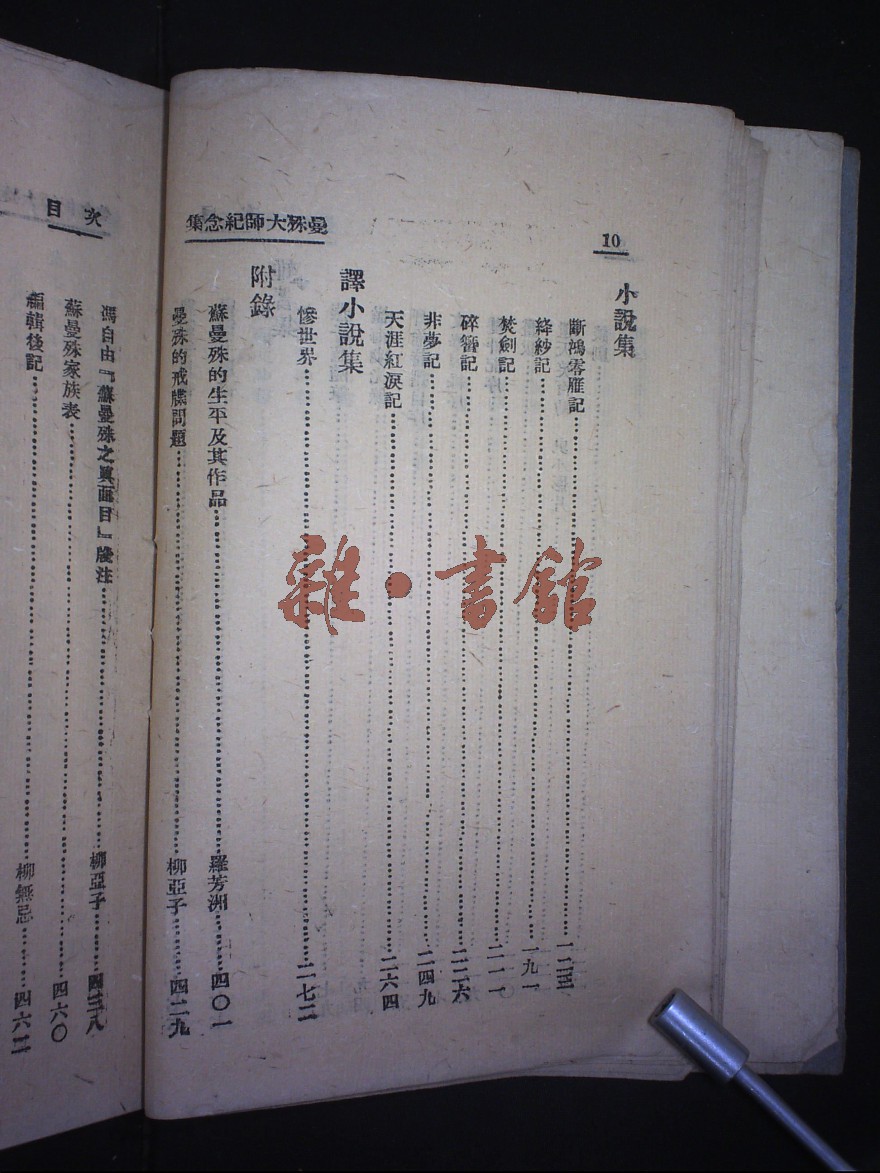 10
曼殊大師紀念集
小說集
斷鴻零雁記……一二三
絳紗記……一九一
焚劍記……二一一
碎簪記……二二六
非夢記……二四九
天涯紅淚記……二六四
譯小說集
慘世界……二七二
附錄
蘇曼殊的生平及其作品……羅芳洲……四〇一
曼殊的戒牒問題……柳亞子……四二九
目次
馮自由『蘇曼殊之真面目』箋注……柳亞子……四三八
蘇曼殊家族表……四六〇
編輯後記……柳無忌……四六二
雜·書館